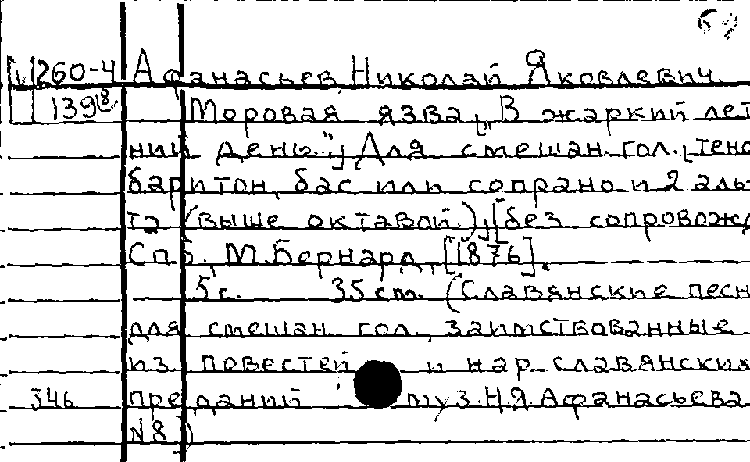 260-4 Афанасьев, Николай Яковлевич.
1398 Моровая язва. "В жаркий лет
ний день"; Для смешан. гол. [тено
баритон, бас или сопрано и 2 аль
та (выше октавой)] без сопровожд
Спб, М. Бернард, [1876].
5 с. 35 cm. (Славянские песн
для смешан. гол., заимствованные
из повестей и нар. славянских
346 преданий муз. Н.Я. Афанасьева
N8)